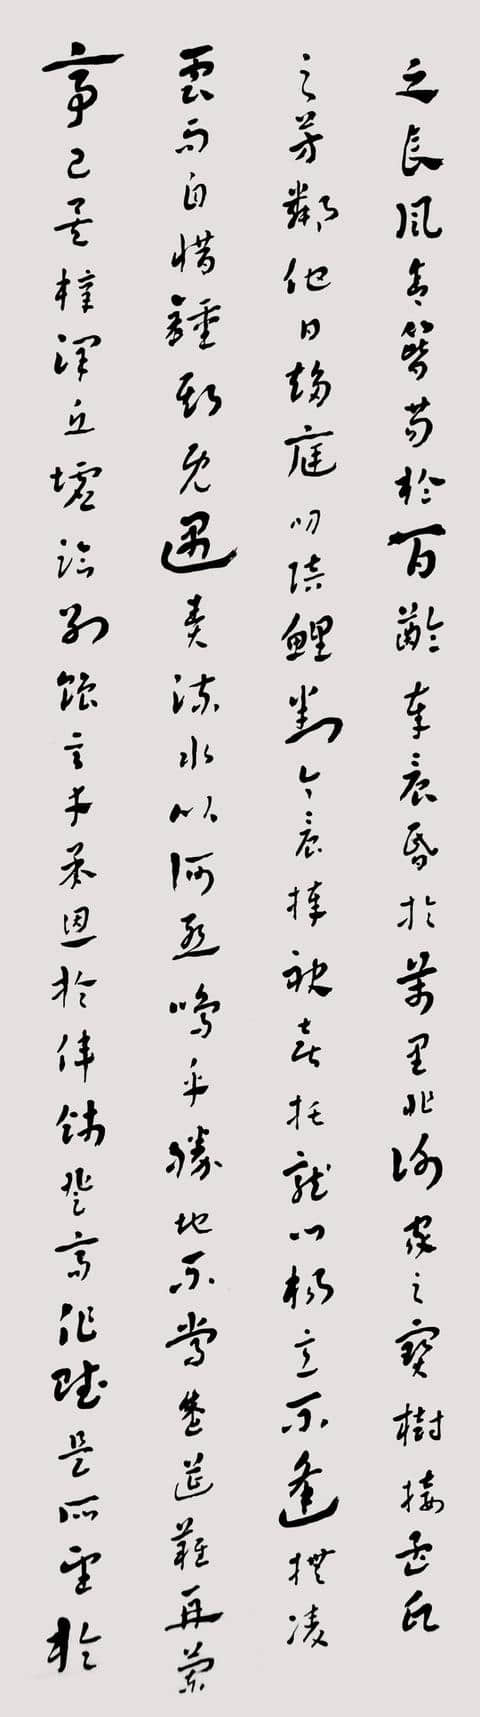 之長風舍簪笏於百齡奉晨昏於萬里非謝家之寶樹接孟氏
之芳鄰他日趨庭叨陪鯉對今晨捧袂喜托龍門楊意不逢撫凌
雲而自惜鍾期既遇奏流水以何慙嗚乎勝地不常盛筵難再蘭
亭已矣梓澤丘墟臨別贈言幸承恩於偉餞登高作賦是所望於